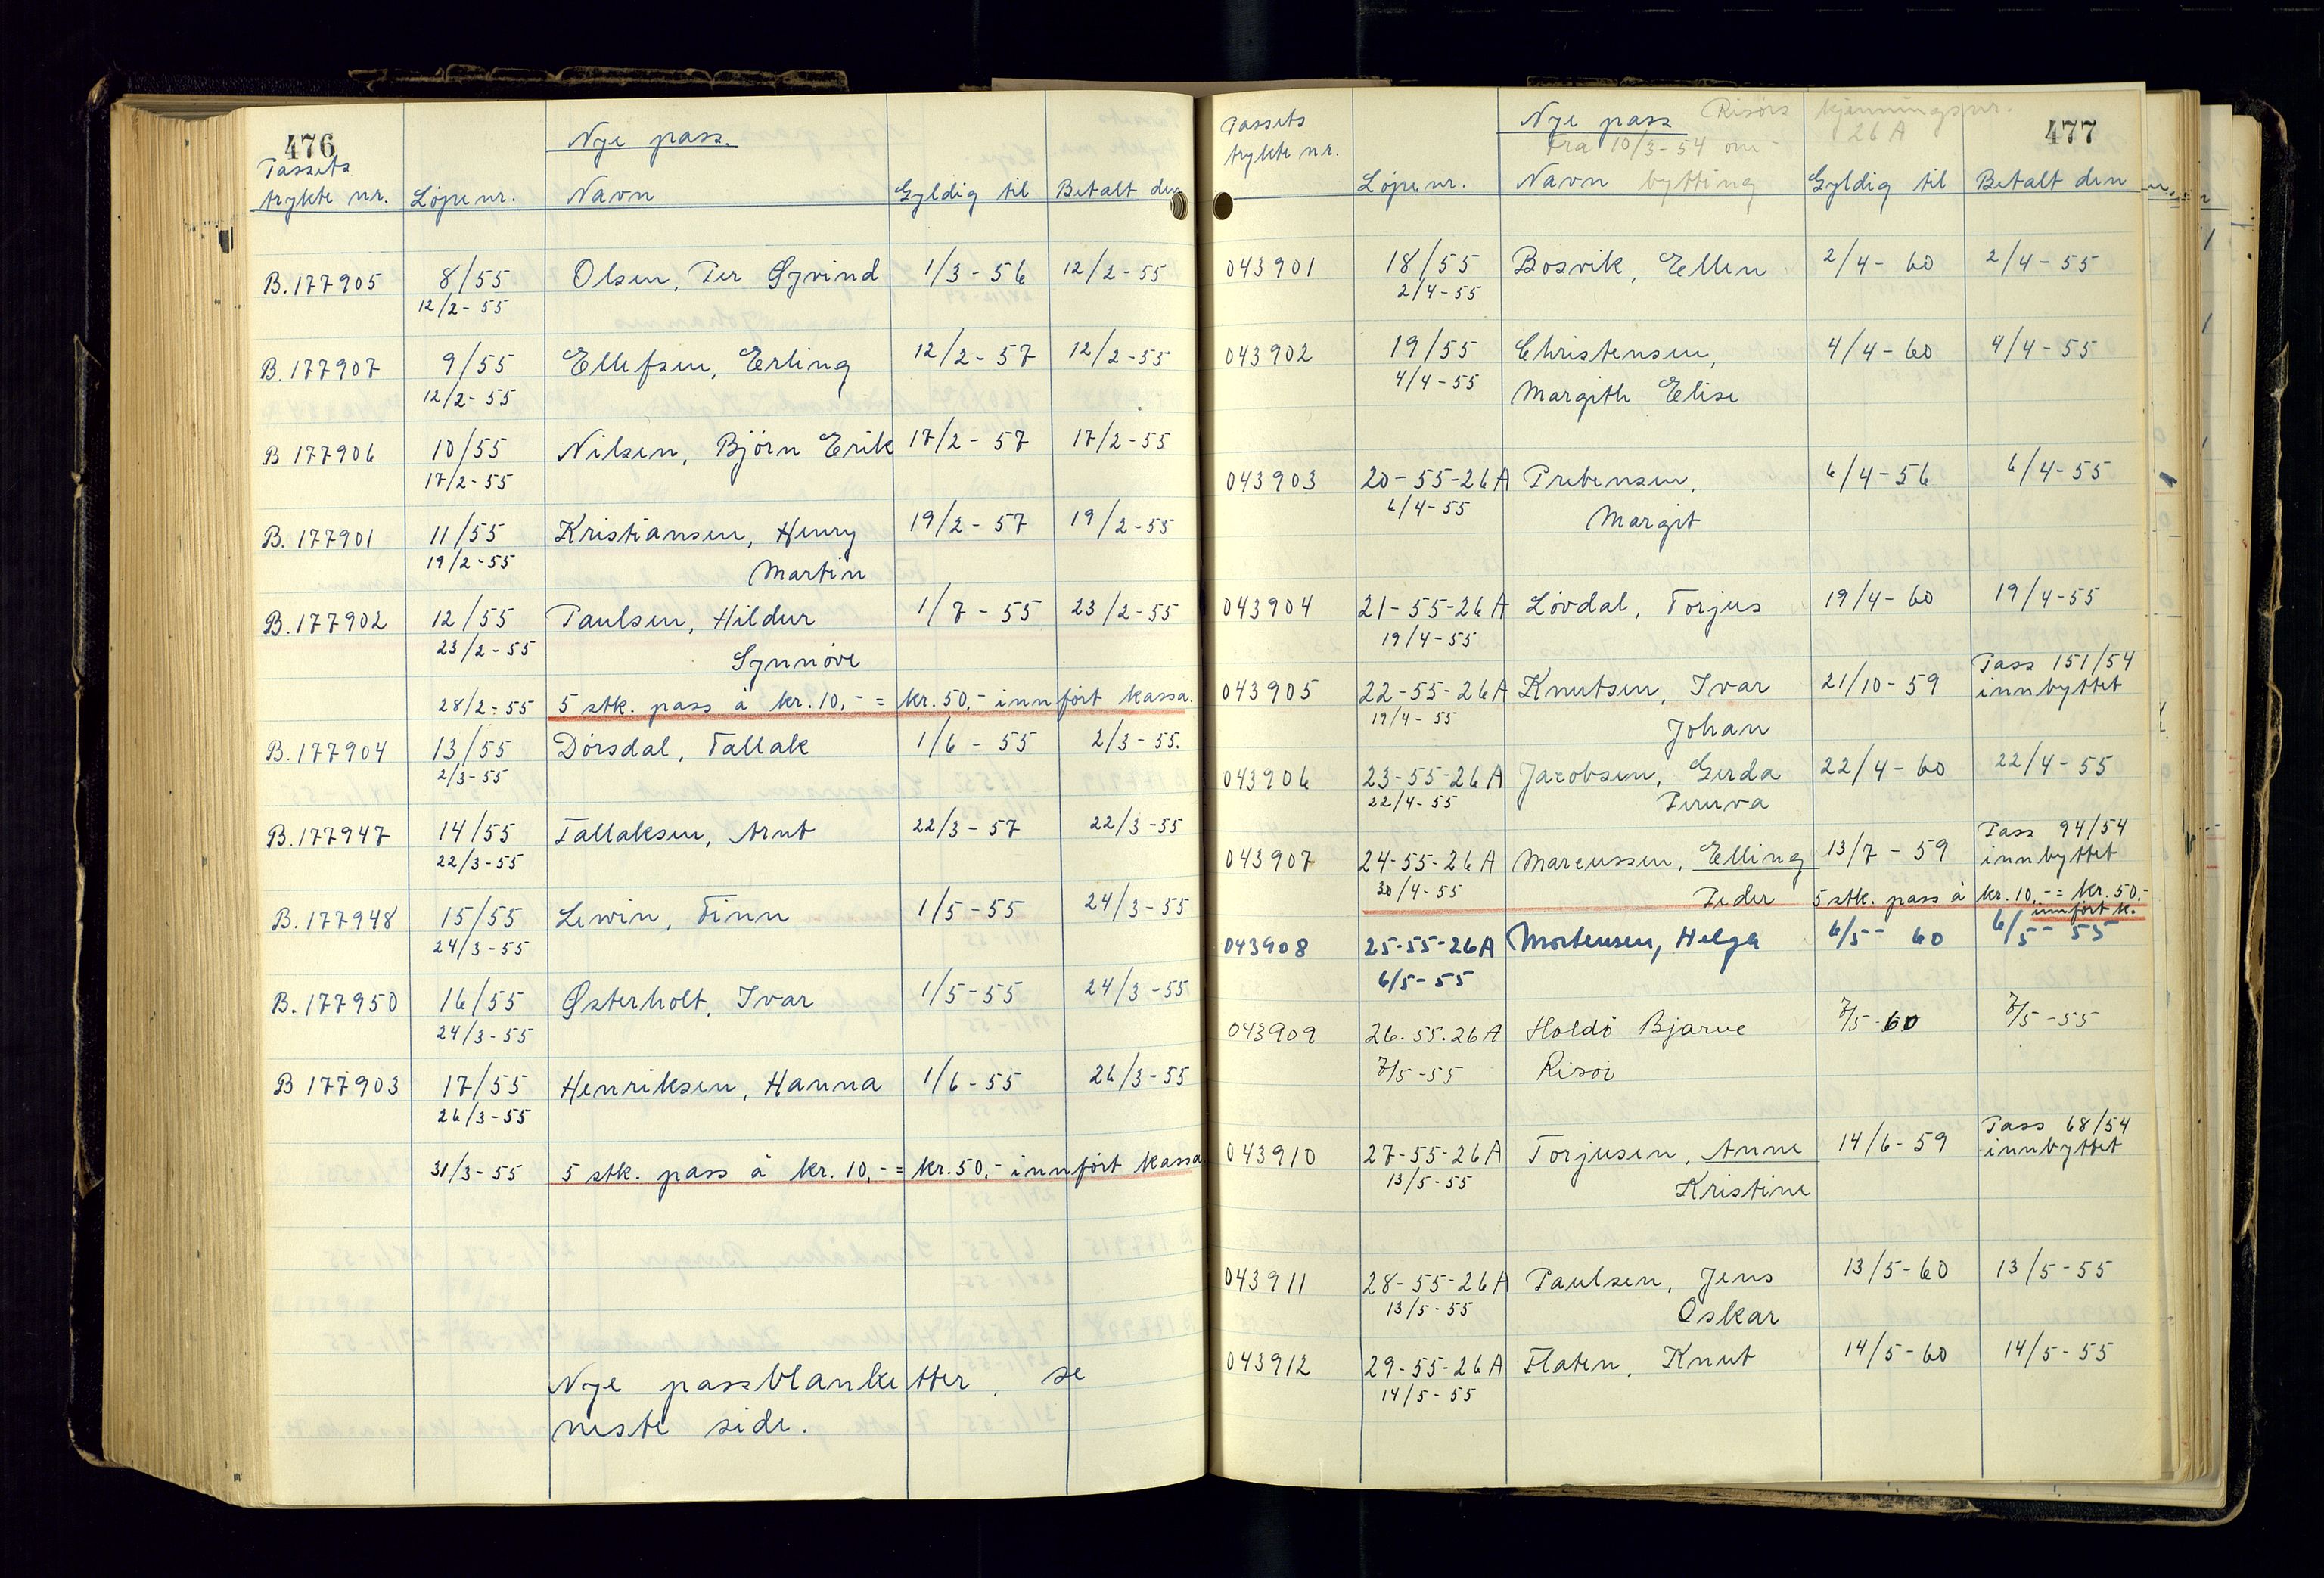 476
Nye pass.
Passets
trykte nr. Löpenr. Navn Gyldig til Betalt den
B. 177905 8/55 Olsen, Per Øyvind 1/3 - 56 12/2 - 55
12/2 - 55
B. 177907 9/55 Ellefsen, Erling 12/2 - 57 12/2 - 55
12/2 - 55
B 177906 10/55 Nilsen, Björn Erik 17/2 - 57 17/2 - 55
17/2 - 55
B. 177901 11/55 Kristiansen, Henry 19/2 - 57 19/2 - 55
19/2 - 55 Martin
B. 177902 12/55 Paulsen, Hildur 1/7 - 55 23/2 - 55
23/2 - 55 Synnöve
28/2 - 55 5 stk. pass à kr. 10,- = kr. 50,- innfört kassa.
B. 177904 13/55 Dörsdal, Tallak 1/6 - 55 2/3 - 55.
2/3 - 55
B. 177947 14/55 Tallaksen, Arnt 22/3 - 57 22/3 - 55
22/3 - 55
B. 177948 15/55 Lewin, Finn 1/5 - 55 24/3 - 55
24/3 - 55
B. 177950 16/55 Østerholt, Ivar 1/5 - 55 24/3 - 55
24/3 - 55
B 177903 17/55 Henriksen, Hanna 1/6 - 55 26/3 - 55
26/3 - 55
31/3 - 55 5 stk. pass à kr. 10,- = kr. 50,- innfört kassa
Nye passblanketter, se
neste side.
477
Passets Nye pass Risörs kjenningsnr.
trykte nr. Fra 10/3 - 54 om- 26 A
Löpenr. Navn bytting Gyldig til Betalt den
043901 18/55 Bosvik, Ellen 2/4 - 60 2/4 - 55
2/4 - 55
043902 19/55 Christensen, 4/4 - 60 4/4 - 55
4/4 - 55 Margith Elise
043903 20-55-26A Prebensen, 6/4 - 56 6/4 - 55
6/4 - 55 Margit
043904 21-55-26A Lövdal, Torjus 19/4 - 60 19/4 - 55
19/4 - 55
043905 22-55-26A Knutsen, Ivar 21/10 - 59 Pass 151/54
19/4 - 55 Johan innbyttet
043906 23-55-26A Jacobsen, Gerda 22/4 - 60 22/4 - 55
22/4 - 55 Peruva
043907 24-55-26A Marcussen, Elling 13/7 - 59 Pass 94/54
innbyttet
30/4 - 55 Peder 5 stk. pass à kr. 10,- = kr. 50,-
innfört k.
043908 25-55-26A Mortensen, Helga 6/5 - 60 6/5 - 55
6/5 - 55
043909 26.55.26A Holdö Bjarne 7/5 - 60 7/5 - 55
7/5 - 55 Risör
043910 27-55-26A Torjusen, Anne 14/6 - 59 Pass 68/54
innbyttet
13/5 - 55 Kristine
043911 28-55-26A Paulsen, Jens 13/5 - 60 13/5 - 55
13/5 - 55 Oskar
043912 29-55-26A Flaten, Knut 14/5 - 60 14/5 - 55
14/5 - 55